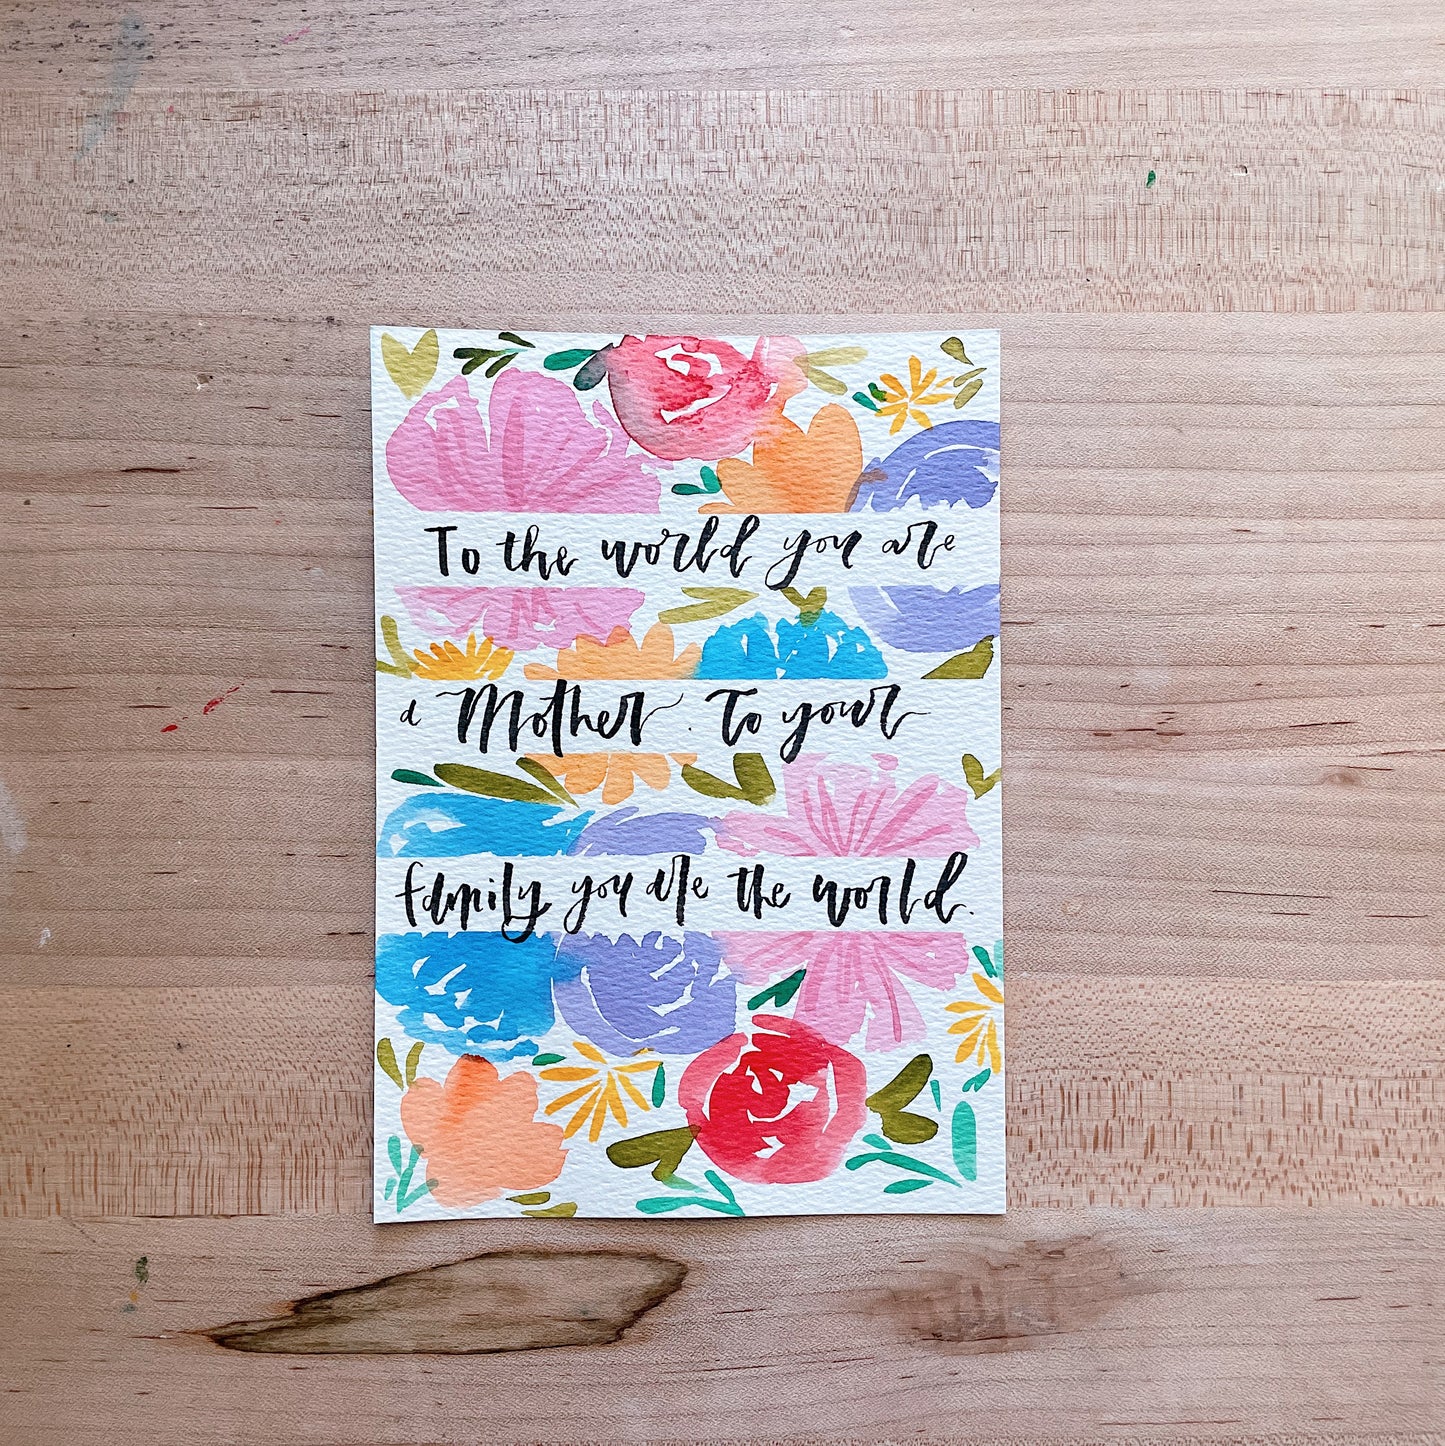 To the world you are
a Mother. To your
family you are the world.